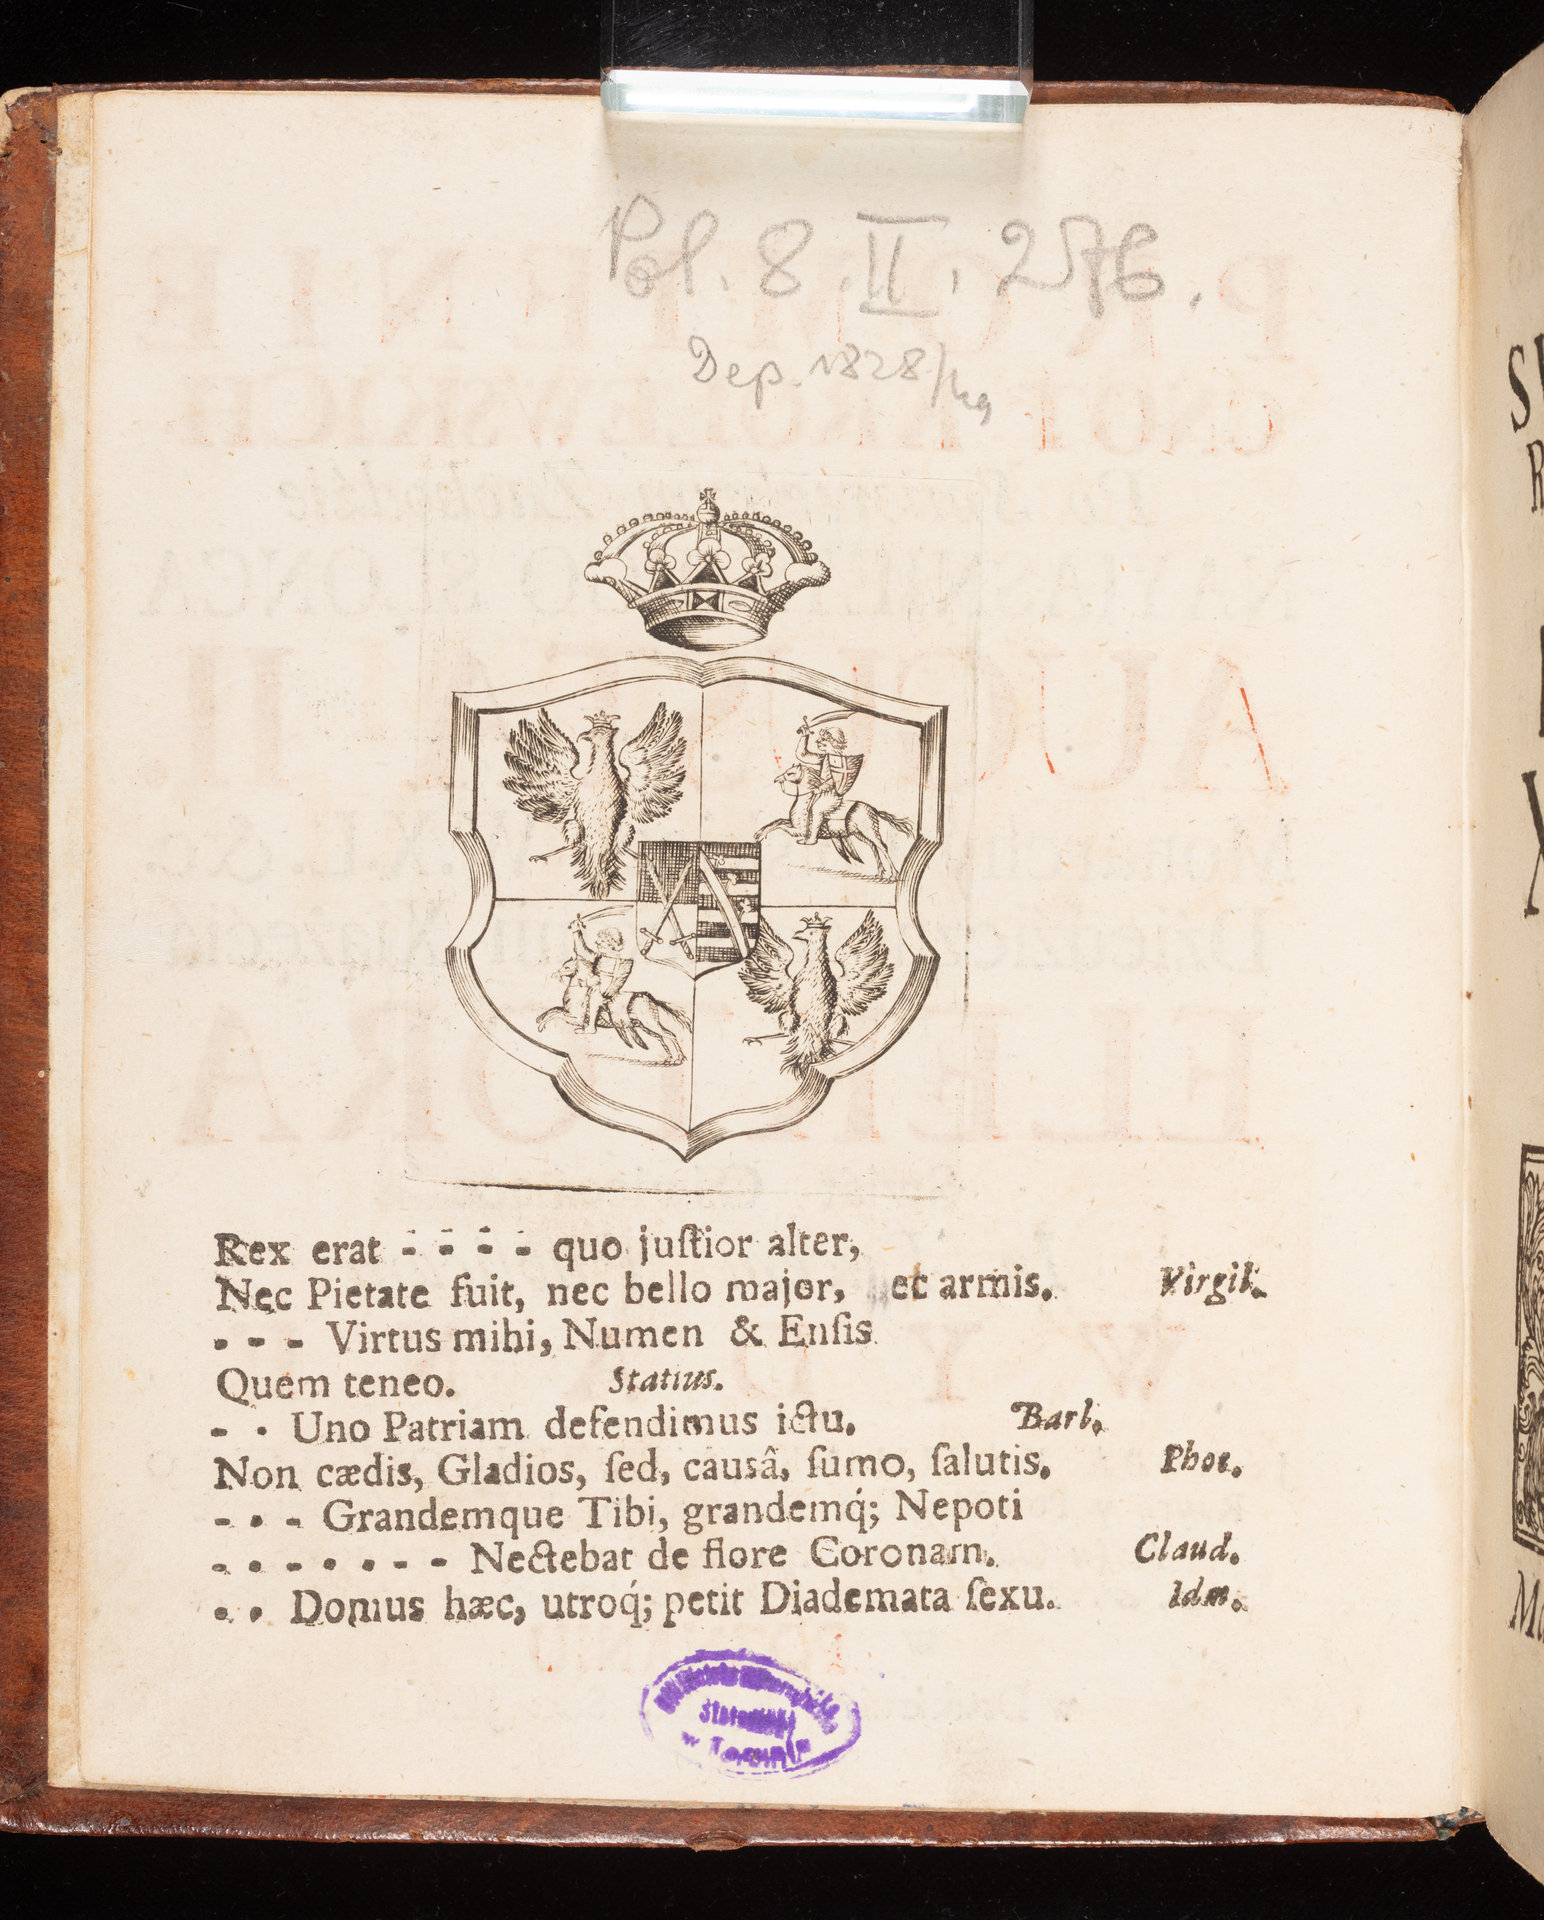 Pol. 8. II. 276.
Dep. 1828/
Rex erat - - - - quo juſtior alter,
Nec Pietate fuit, nec bello major, et armis. Virgil.
- - - Virtus mihi, Numen & Enſis
Quem teneo. Statius.
- - Uno Patriam defendimus ictu. Barl.
Non cædis, Gladios, ſed, causâ, ſumo, ſalutis. Phoe.
- - - Grandemque Tibi, grandemq́; Nepoti
- - - - - - - Nectebat de flore Coronam. Claud.
- - Domus hæc, utroq́; petit Diademata ſexu. Idm.
w Toruniu